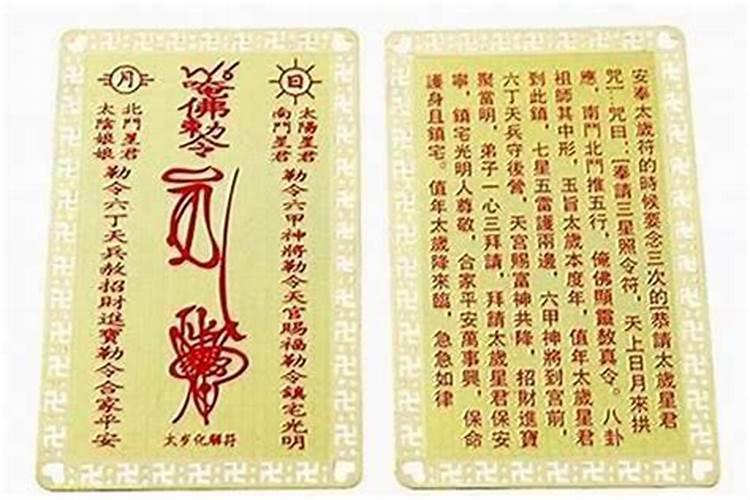 日
太陽星君
南鬥星君
勒令六甲神將勒令天官賜福勒令鎮宅光明
唵佛勅令
太歲化解符
月
北鬥星君
太陰娘娘
勒令六丁天兵赦招財進寶勒令合家平安
安奉太歲符的時候要念三次的[恭請太歲星君
咒]…咒曰:[奉請三星照令符，天上日月來拱
應，南鬥北鬥推五行，俺佛顯靈敎真令。八卦
祖師其中形，玉旨太歲本度年，值年太歲星君
到此鎮，七星五雷護兩邊，六甲神將到宮前，
六丁天兵守後營，天宮賜富神共降，招財進寶
聚當明，弟子一心三拜請，拜請太歲星君保安
寧，鎮宅光明人尊敬，合家平安萬事興，保命
護身且鎮宅。值年太歲降來臨，急急如律